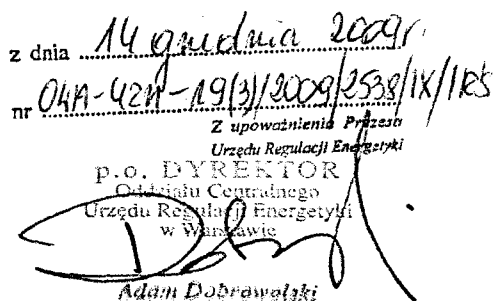 z dnia 14 grudnia 2009r.
nr O4A-42n-19(3)/2009/2538/IX/
Z upoważnienia Prezesa
Urzędu Regulacji Energetyki
p.o. DYREKTOR
Oddziału Centralnego
Urzędu Regulacji Energetyki
w Warszawie
Adam Dobrowolski